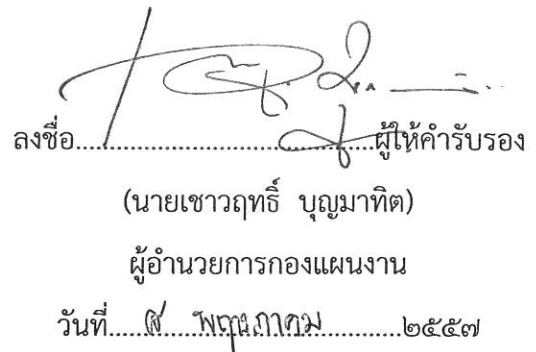 ลงชื่อ..............................................ผู้ให้คำรับรอง
(นายเชาวฤทธิ์ บุญมาทิต)
ผู้อำนวยการกองแผนงาน
วันที่..... พฤษภาคม............๒๕๕๗